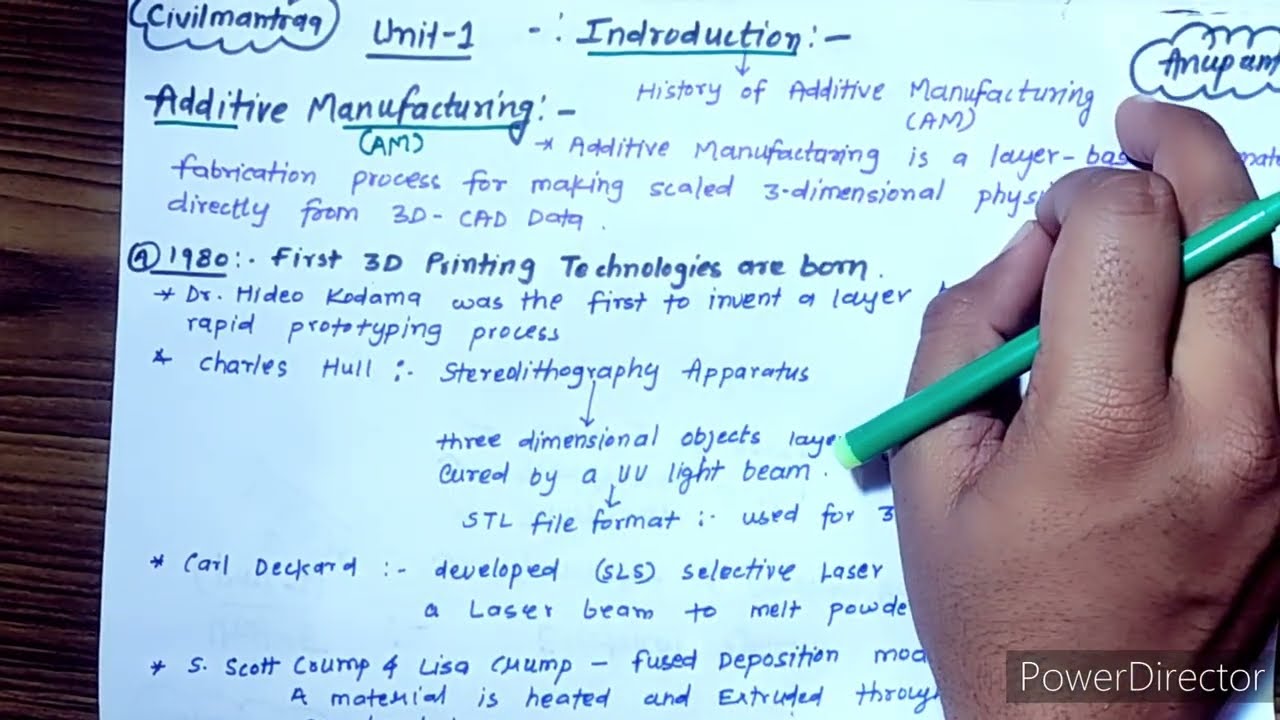 Civilmantraa
Unit-1 -: Indroduction:-
Anupam
History of Additive Manufacturing
(AM)
Additive Manufacturing:-
(AM)
→ Additive Manufacturing is a layer-
fabrication process for making scaled 3-dimensional
directly from 3D-CAD Data.
1980:- First 3D Printing Technologies are born.
* Dr. Hideo Kodama was the first to invent a layer
rapid prototyping process
* Charles Hull :- Stereolithography Apparatus
three dimensional objects
cured by a UV light beam.
STL file format :- used for 3
* Carl Deckard :- developed (SLS) selective Laser
a Laser beam to melt
* S. Scott Crump & Lisa Crump - fused Deposition
A material is heated and Extruded
PowerDirector